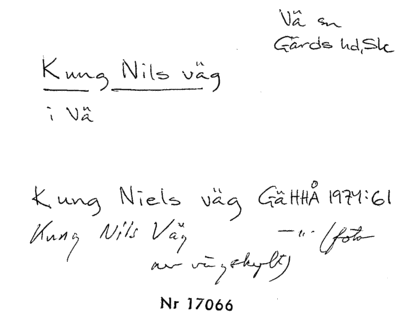 Vä sn
Gärds hd, Sk
Kung Nils väg
i Vä
Kung Niels väg GäHHÅ 1971:61
Kung Nils Väg —"— (foto
av vägskylt)
Nr 17066